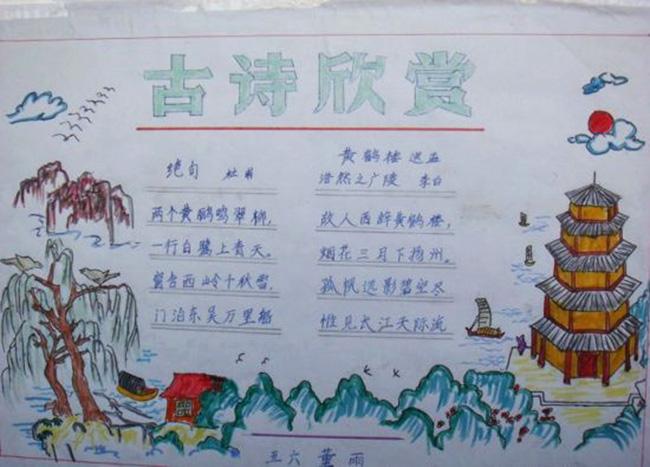 古诗欣赏
绝句 杜甫
两个黄鹂鸣翠柳,
一行白鹭上青天。
窗含西岭千秋雪,
门泊东吴万里船
黄鹤楼 送孟
浩然之广陵 李白
故人西辞黄鹤楼,
烟花三月下扬州。
孤帆远影碧空尽
惟见长江天际流
五六 董雨